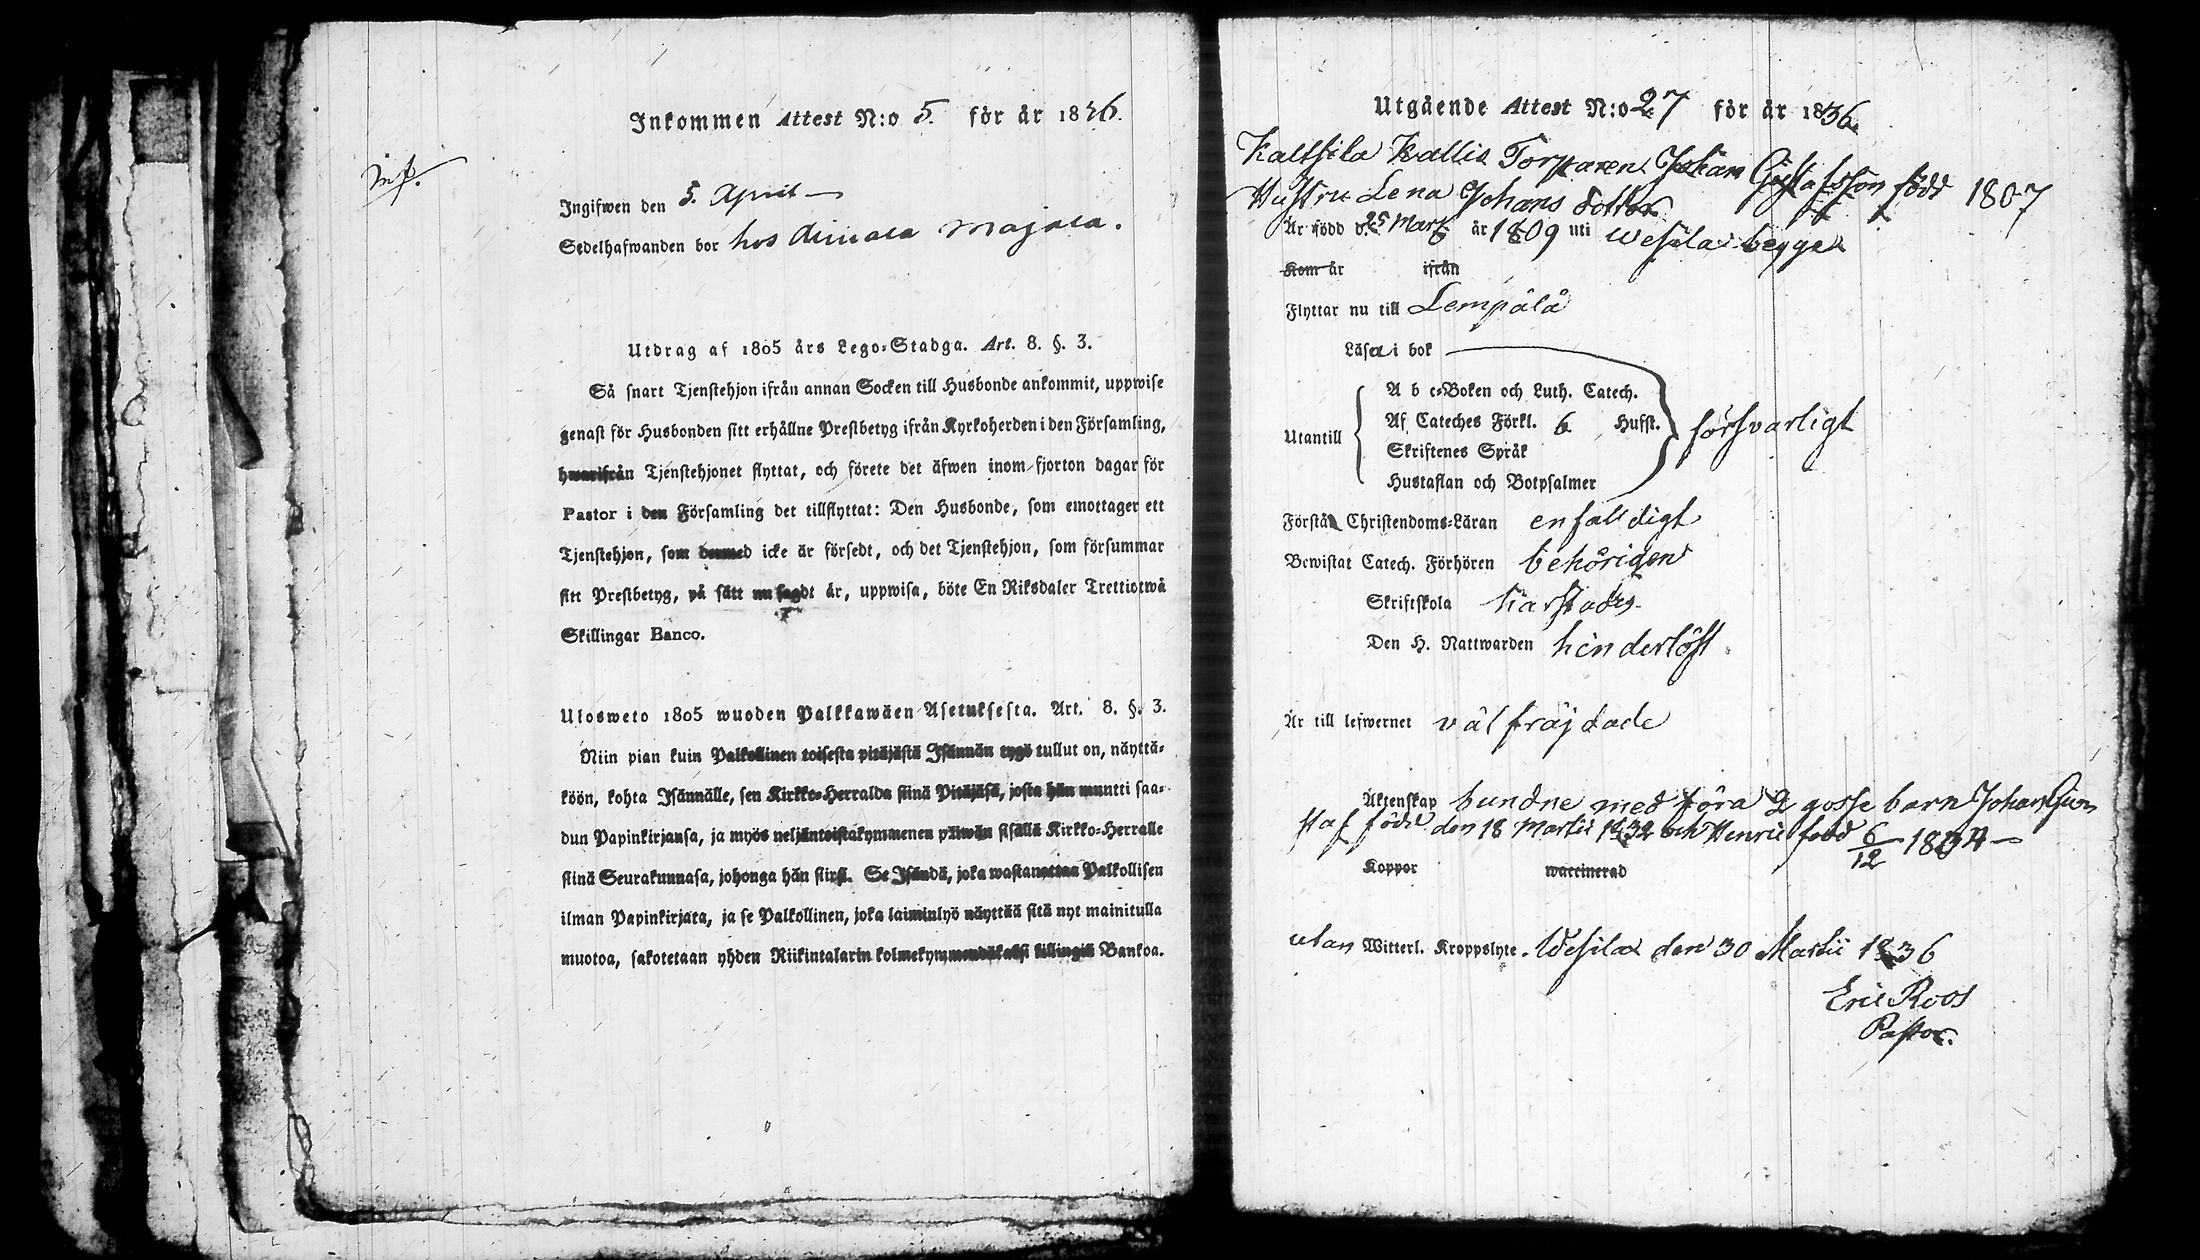 Inkommen Attest N:o 5. för år 1836.
inf.
Ingifwen den 5. April
Sedelhafwanden bor hos Majala.
Utdrag af 1805 års Lego-Stadga. Art. 8. §. 3.
Så snart Tjenstehjon ifrån annan Socken till Husbonde ankommit, uppwise
genast för Husbonden sitt erhållne Prestbetyg ifrån Kyrkoherden i den Församling,
hwarifrån Tjenstehjonet flyttat, och förete det äfwen inom fjorton dagar för
Pastor i den Församling det tillflyttat: Den Husbonde, som emottager ett
Tjenstehjon, som dermed icke är försedt, och det Tjenstehjon, som försummar
sitt Prestbetyg, på sätt nu sagdt är, uppwisa, böte En Riksdaler Trettiotwå
Skillingar Banco.
Ulosweto 1805 wuoden Palkkawäen Asetuksesta. Art. 8. §. 3.
Niin pian kuin Palkollinen toisesta pitäjästä Isännän tygö tullut on, näyttä-
köön, kohta Isännälle, sen Kirkko-Herralda siinä Pitäjäsä, josta hän muutti saa-
dun Papinkirjansa, ja myös neljäntoistakymmenen päiwän sisällä Kirkko-Herralle
siinä Seurakunnasa, johonga hän siirsi. Se Isändä, joka wastanottaa Palkollisen
ilman Papinkirjata, ja se Palkollinen, joka laiminlyö näyttää sitä nyt mainitulla
muotoa, sakotetaan yhden Riikintalarin kolmekymmendäkaksi killingiä Bankoa.
Utgående Attest N:o 27 för år 1836.
Kaltsila Kallis Torparen Johan Gustafsson född 1807
Hustru Lena Johans dotter
Är född d. 25 Mart. år 1809 uti Wesila begge
Kom år ifrån
Flyttar nu till Lempälä
Läsa i bok
Utantill
A b c-Boken och Luth. Catech.
Af Cateches Förkl. 6 Hufst.
Skriftenes Språk
Hustaflan och Botpsalmer
försvarligt
Förstå Christendoms-Läran enfalldigt
Bewistat Catech. Förhören behörigen
Skriftskola härstädes
Den H. Nattwarden hinderlöst
Är till lefwernet välfräjdade
Äktenskap bundne med föra 2 gosse barn Johan Gus
staf född den 18 Martii 1832 och Henric född 6/12 1834
Koppor waccinerad
utan Witterl. Kroppslyte. Wesila den 30 Martii 1836
Eric Roos
Pastor.